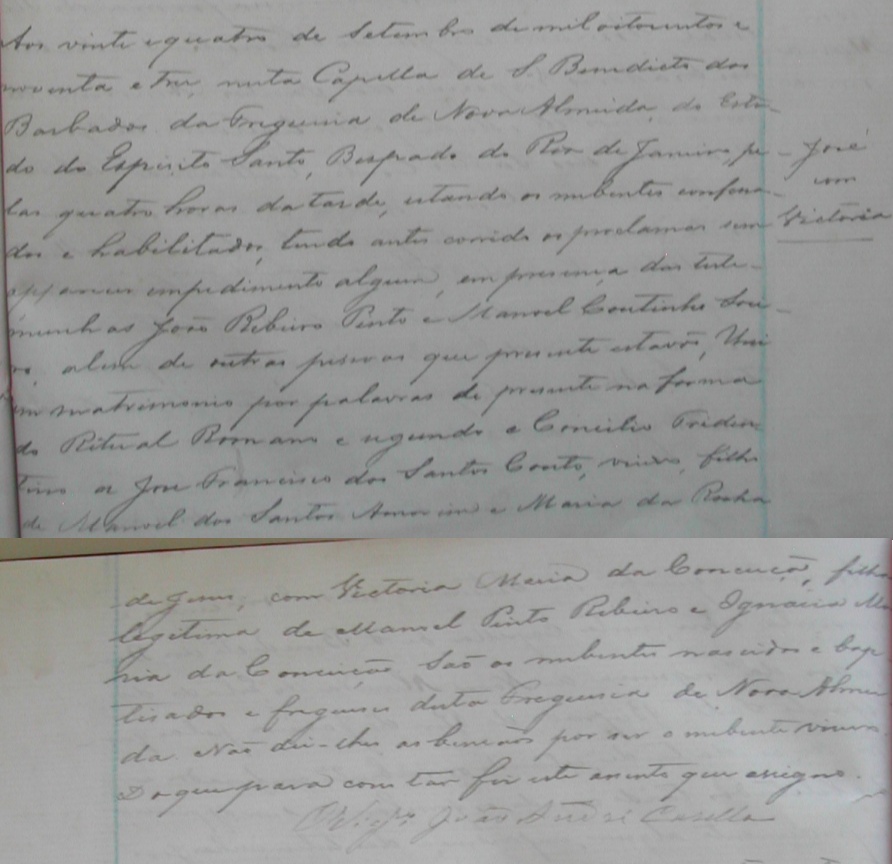 Aos vinte e quatro de Setembro de mil oitocentos e
noventa e tres, nesta Capella de S. Benedicto dos
Barbados da Freguesia de Nova Almeida, do Esta-
do do Espirito Santo, Bispado do Rio de Janeiro, pe-
las quatro horas da tarde, estando os nubentes confessa-
dos e habilitados, tendo antes corrido os proclamas sem
apparecer impedimento algum, em presença das teste-
munhas João Ribeiro Pinto e Manoel Coutinho
alem de outras pessoas que presente estavão, Uni
em matrimonio por palavras de presente na forma
do Ritual Romano e segundo o Concilio Triden-
tino a José Francisco dos Santos Couto, viuvo, filho
de Manoel dos Santos Amorim e Maria da Rocha
José
com
Victoria
de Jesus, com Victoria Maria da Conceição, filha
legitima de Manoel Pinto Ribeiro e Ignacia Ma
ria da Conceição São os nubentes nascidos e bap
tisados e fregueses desta Freguesia de Nova Almei
da Não dei-lhes as bençãos por ser o nubente viuvo.
Do que para constar fiz este assento que assigno.
O Vig.º João André Casella